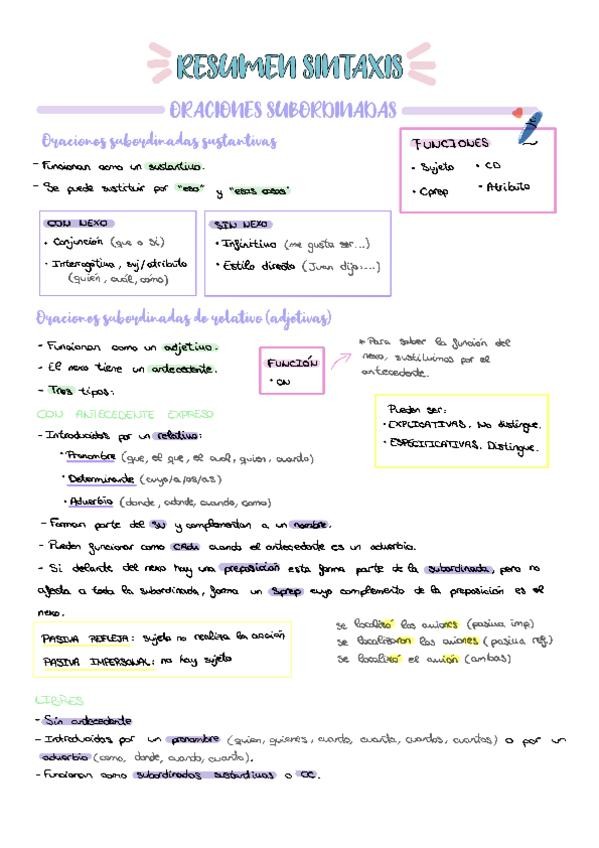 RESUMEN SINTAXIS
ORACIONES SUBORDINADAS
Oraciones subordinadas sustantivas
- Funcionan como un sustantivo.
- Se puede sustituir por "eso" y "esas cosas"
FUNCIONES
• Sujeto • CD
• Cprep • Atributo
CON NEXO
• Conjunción (que o si)
• Interrogativa, suj/atributo
(quién, cuál, cómo)
SIN NEXO
• Infinitivo (me gusta ser...)
• Estilo directo (Juan dijo:...)
Oraciones subordinadas de relativo (adjetivas)
- Funcionan como un adjetivo.
- El nexo tiene un antecedente.
- Tres tipos:
FUNCIÓN
• CN
* Para saber la función del
nexo, sustituimos por el
antecedente.
Pueden ser:
• EXPLICATIVAS. No distingue.
• ESPECIFICATIVAS. Distingue.
CON ANTECEDENTE EXPRESO
- Introducidas por un relativo:
• Pronombre (que, el que, el cual, quien, cuanto)
• Determinante (cuyo/a/os/as)
• Adverbio (donde, adonde, cuando, como)
- Forman parte del SN y complementan a un nombre.
- Pueden funcionar como CAdv cuando el antecedente es un adverbio.
- Si delante del nexo hay una preposición esta forma parte de la subordinada, pero no
afecta a toda la subordinada, forma un Sprep cuyo complemento de la preposición es el
nexo.
PASIVA REFLEJA: sujeto no realiza la acción
PASIVA IMPERSONAL: no hay sujeto
se localizó los aviones (pasiva imp)
se localizaron los aviones (pasiva ref)
se localizó el avión (ambas)
LIBRES
- Sin antecedente
- Introducidas por un pronombre (quien, quienes, cuanto, cuanta, cuantos, cuantas) o por un
adverbio (como, donde, cuando, cuanto).
- Funcionan como subordinadas sustantivas o CC.